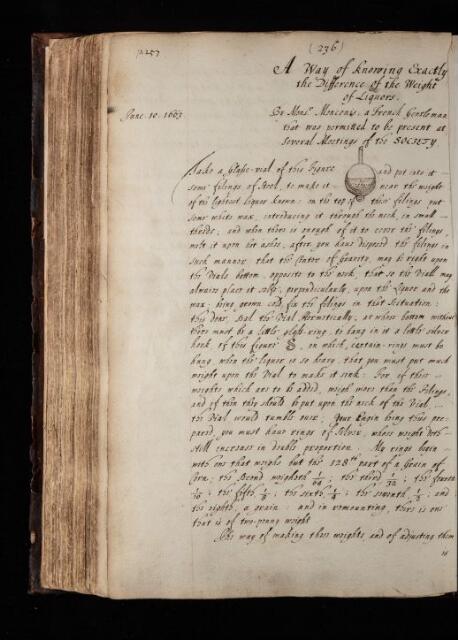 p. 253
(236)
A Way of knowing Exactly
the Difference of the Weight
of Liquors.
June. 10. 1663
By Monsr. Monconis, a French Gentleman
that was permitted to be present at
Several Meetings of the SOCIETY
Take a glass-vial of this Figure and put into it
some filings of Steel, to make it near the weight
of the lightest liquor known: on the top of these filings put
some white wax, introducing it through the neck, in small
threds; and when there is enough of it to cover the filings,
melt it upon hot ashes, after you have disposed the filings in
such manner, that the Center of Gravity, may be right upon
the Vials bottom, opposite to the neck, that so the Viall may
alwaies place it self, perpendicularly, upon the Liquor and the
wax, being grown cold, fix the filings in that Situation:
this done, Seal the Vial Hermetically; at whose bottom without
there must be a little glass-ring, to hang in it a little silver
hook of this figure S, on which, certain rings must be
hung, when the liquor is so heavy, that you must put much
weight upon the Vial to make it sink: For, if these
weights which are to be added, weigh more than the Filings,
and if then they should be put upon the neck of the Vial
the Vial would tumble over. Your Engin being thus pre-
pared, you must have rings of Silver, whose weight doth
still increase in double proportion. My rings begin
with one that weighs but the 128th part of a Grain of
Corn; the Second weigheth 1/64; the third 1/32; the fourth
1/16; the fifth 1/8; the sixth 1/4; the seventh 1/2; and
the eighth, a grain: and in remounting, there is one
that is of two-penny weight
The way of making these weights, and of adjusting them
is